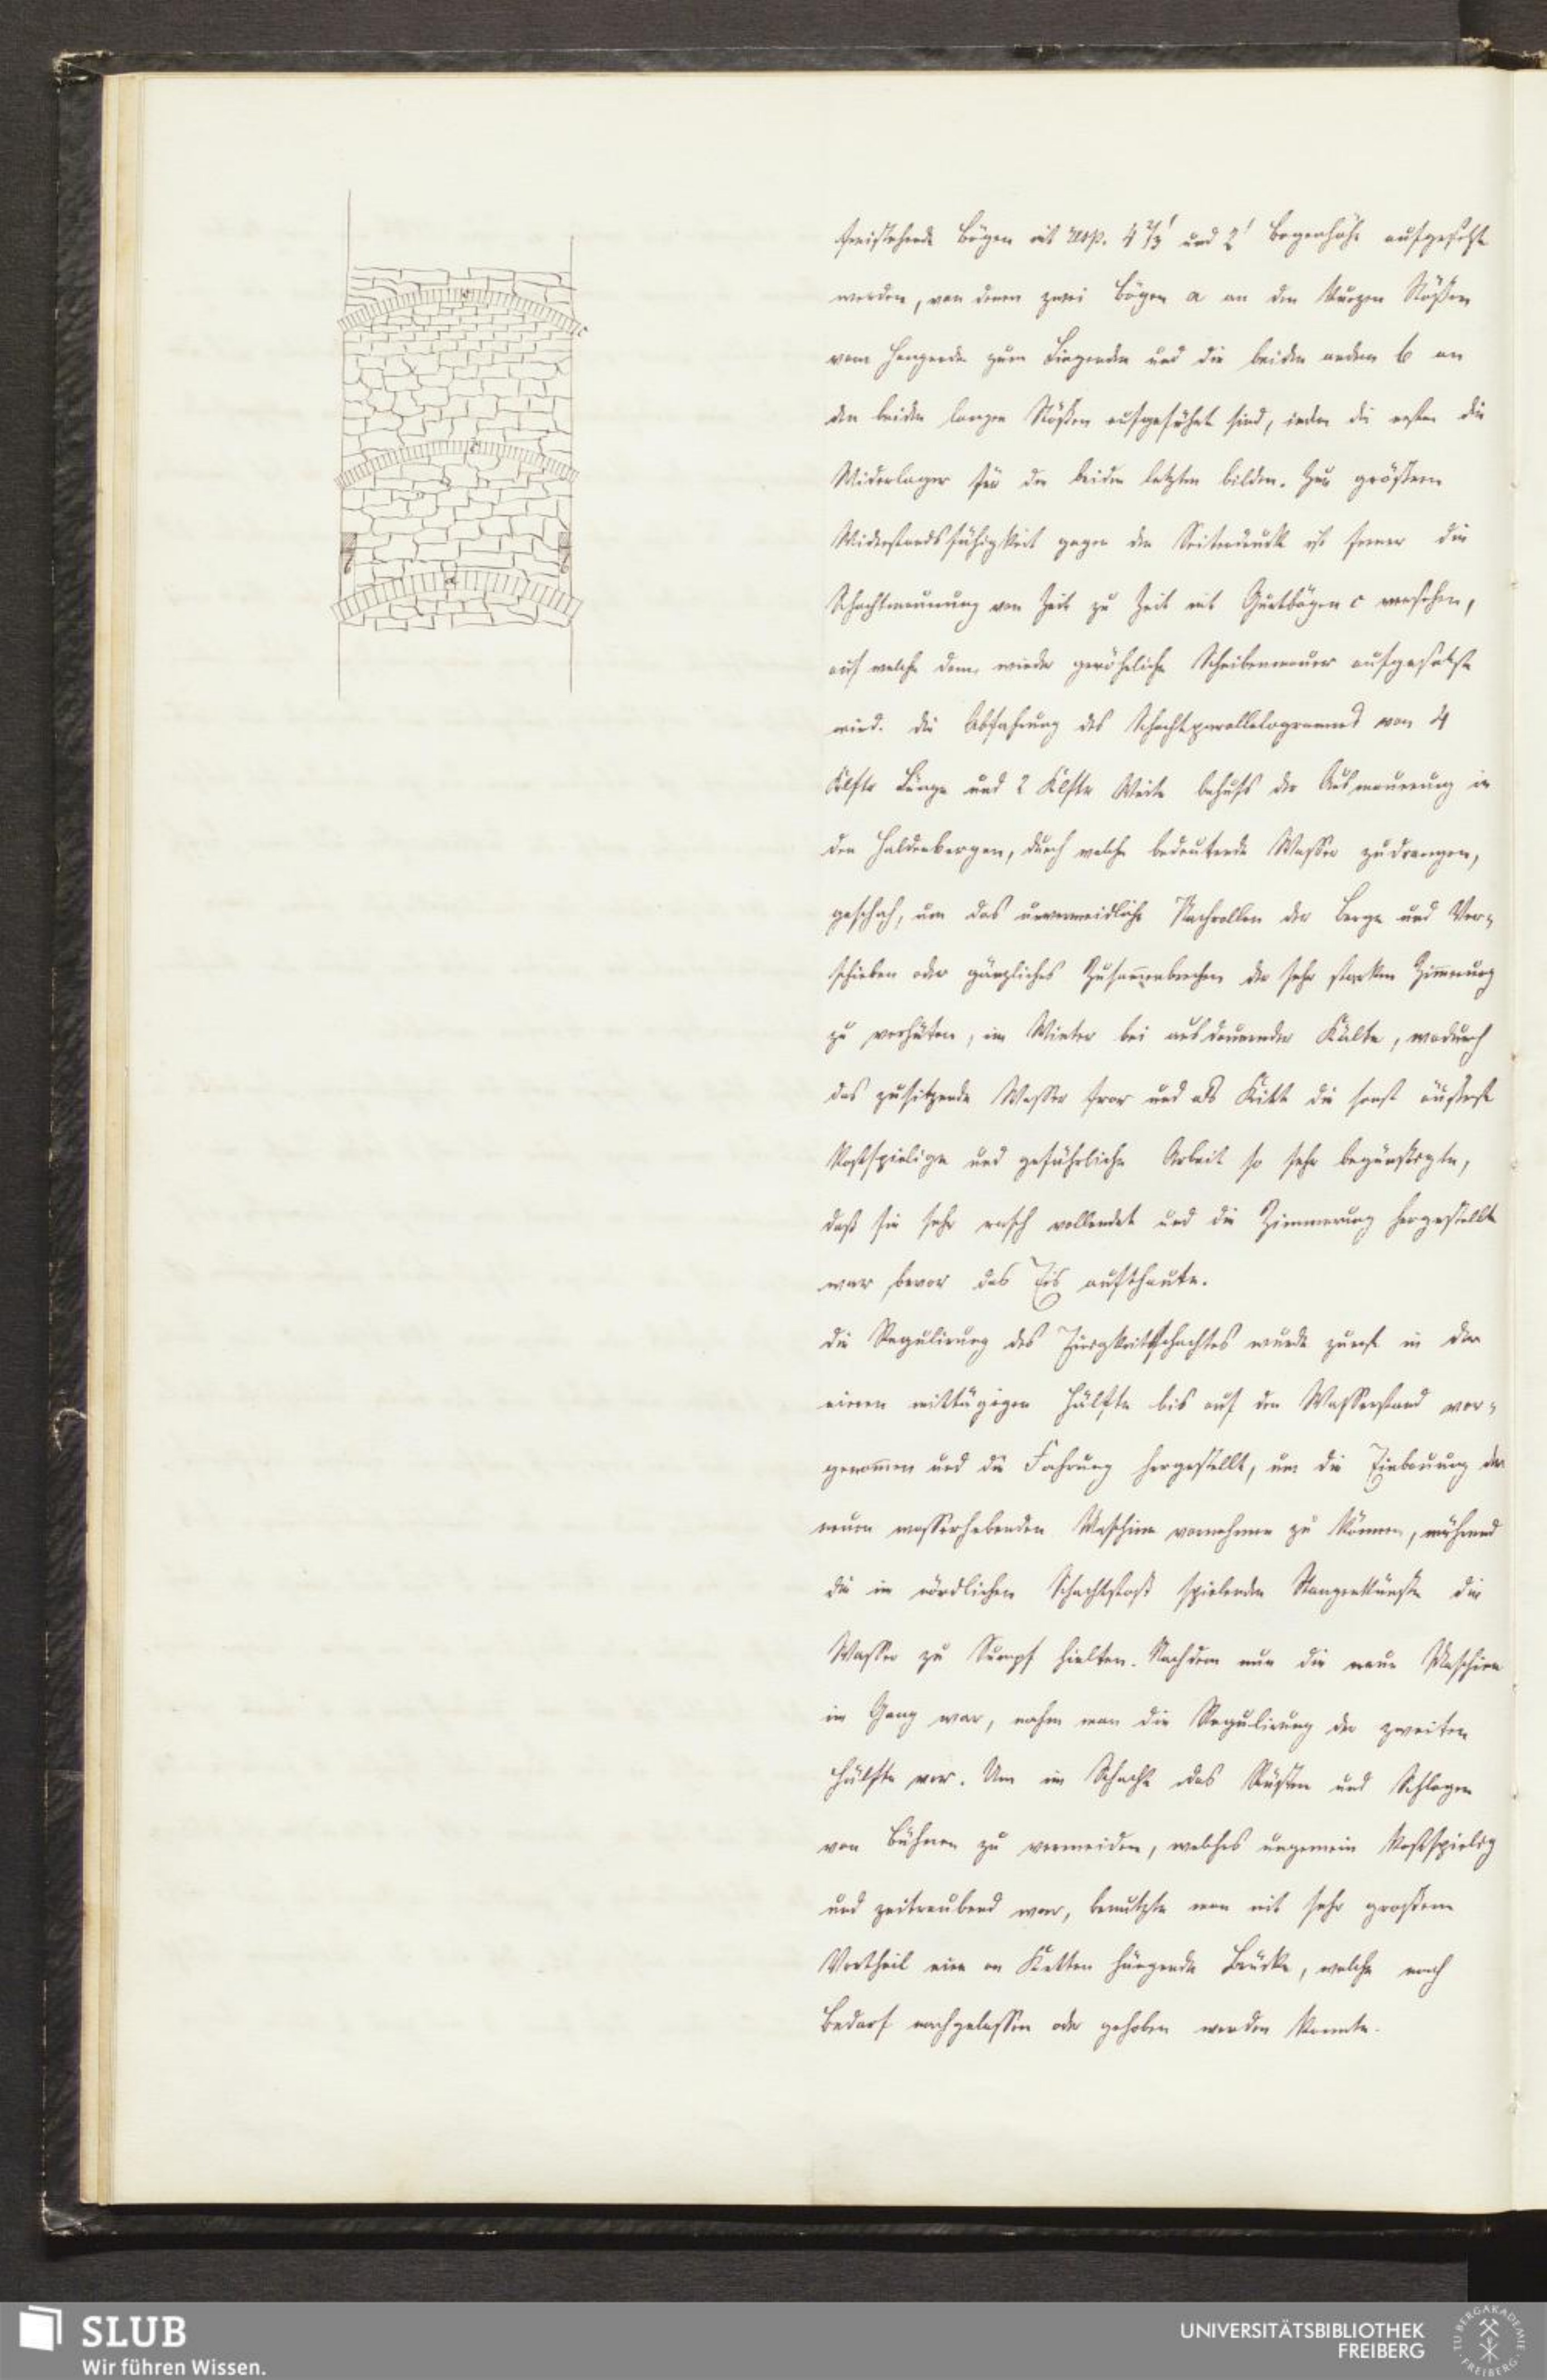 freistehende Bögen mit resp. 4 2/3' und 2' Bogenhöhe aufgeführt
werden, von denen zwei Bögen a an den kurzen Stößen
vom Hangenden zum Liegenden und die beiden andern b an
den beiden langen Stößen aufgeführt sind, indem die ersten die
Widerlager für die beiden letzten bilden. Zur größern
Widerstandsfähigkeit gegen den Seitendruck ist ferner die
Schachtmauerung von Zeit zu Zeit mit Gurtbögen c versehen,
auf welche dann wieder gewöhnliche Scheibenmauer aufgesetzt
wird. Die Abfahrung des Schachtparallelogramms von 4
Klftr Länge und 2 Klftr Weite behufs der Ausmauerung in
den Haldenbergen, durch welche bedeutende Wasser zudrangen,
geschah, um das unvermeidliche Nachrollen der Berge und Ver-
schieben oder gänzliches Zusam̅enbrechen der sehr starken Zim̅erung
zu verhüten, im Winter bei ausdauernder Kälte, wodurch
das zusitzende Wasser fror und als Kitt die sonst äußerst
kostspielige und gefährliche Arbeit so sehr begünstigte,
daß sie sehr rasch vollendet und die Zimmerung hergestellt
war bevor das Eis aufthaute.
Die Regulirung des schachtes wurde zuerst in der
einen mittägigen Hälfte bis auf den Wasserstand vor-
genom̅en und die Fahrung hergestellt, um die Einbauung der
neuen wasserhebenden Maschine vornehmen zu können, während
die im nördlichen Schachtstoß spielenden Stangenkünste die
Wasser zu Sumpf hielten. Nachdem nun die neue Maschine
im Gang war, nahm man die Regulirung der zweiten
Hälfte vor. Um im Schacht das Rüsten und Schlagen
von Bühnen zu vermeiden, welches ungemein kostspielig
und zeitraubend war, benutzte man mit sehr großem
Vortheil eine an Ketten hängende Brücke, welche nach
Bedarf nachgelassen oder gehoben werden konnte.
c
a
b
b
SLUB
Wir führen Wissen.
UNIVERSITÄTSBIBLIOTHEK
FREIBERG
TU BERGAKADEMIE
FREIBERG